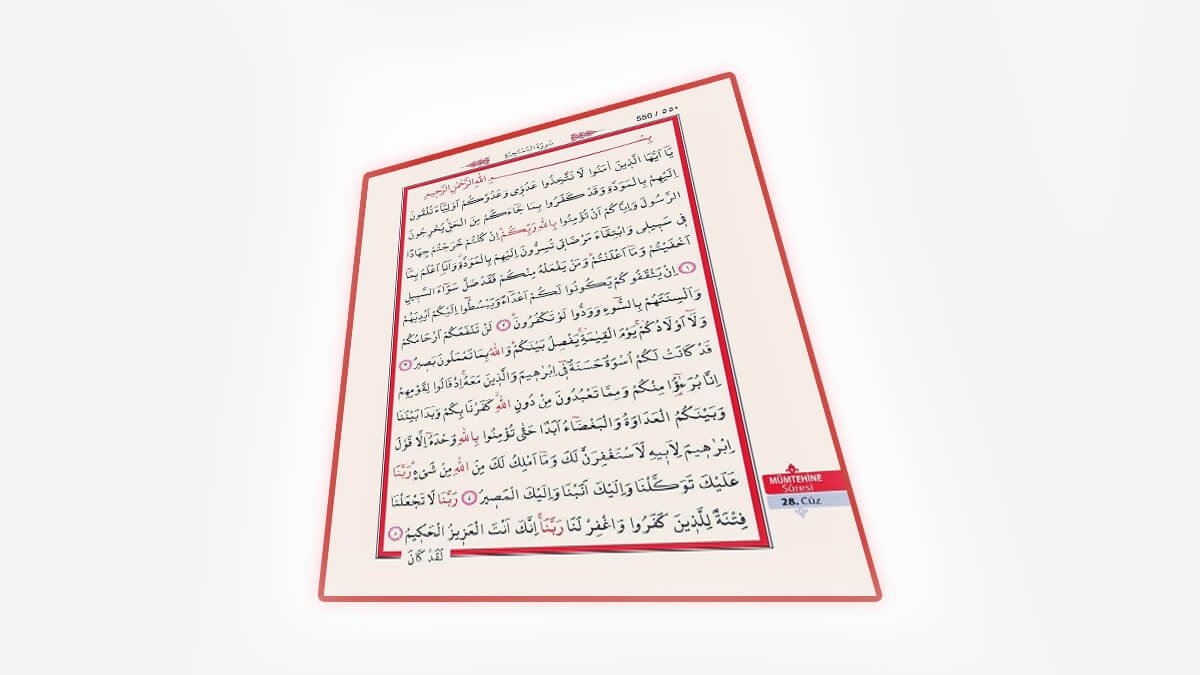 550 / ٥٥٠
سُورَةُ الْمُمْتَحِنَةِ
بِسْمِ اللّٰهِ الرَّحْمٰنِ الرَّحٖيمِ
يَٓا اَيُّهَا الَّذٖينَ اٰمَنُوا لَا تَتَّخِذُوا عَدُوّٖى وَعَدُوَّكُمْ اَوْلِيَٓاءَ تُلْقُونَ
اِلَيْهِمْ بِالْمَوَدَّةِ وَقَدْ كَفَرُوا بِمَا جَٓاءَكُمْ مِنَ الْحَقِّۚ يُخْرِجُونَ
الرَّسُولَ وَاِيَّاكُمْ اَنْ تُؤْمِنُوا بِاللّٰهِ رَبِّكُمْؕ اِنْ كُنْتُمْ خَرَجْتُمْ جِهَادًا
فٖى سَبٖيلٖى وَابْتِغَٓاءَ مَرْضَاتٖى تُسِرُّونَ اِلَيْهِمْ بِالْمَوَدَّةِۗ وَاَنَا۬ اَعْلَمُ بِمَٓا
اَخْفَيْتُمْ وَمَٓا اَعْلَنْتُمْؕ وَمَنْ يَفْعَلْهُ مِنْكُمْ فَقَدْ ضَلَّ سَوَٓاءَ السَّبٖيلِ
﴿١﴾ اِنْ يَثْقَفُوكُمْ يَكُونُوا لَكُمْ اَعْدَٓاءً وَيَبْسُطُٓوا اِلَيْكُمْ اَيْدِيَهُمْ
وَاَلْسِنَتَهُمْ بِالسُّٓوءِ وَوَدُّوا لَوْ تَكْفُرُونَؕ ﴿٢﴾ لَنْ تَنْفَعَكُمْ اَرْحَامُكُمْ
وَلَٓا اَوْلَادُكُمْۚ يَوْمَ الْقِيٰمَةِۚ يَفْصِلُ بَيْنَكُمْؕ وَاللّٰهُ بِمَا تَعْمَلُونَ بَصٖيرٌ ﴿٣﴾
قَدْ كَانَتْ لَكُمْ اُسْوَةٌ حَسَنَةٌ فٖٓى اِبْرٰهٖيمَ وَالَّذٖينَ مَعَهُۚ اِذْ قَالُوا لِقَوْمِهِمْ
اِنَّا بُرَءٰٓؤُا مِنْكُمْ وَمِمَّا تَعْبُدُونَ مِنْ دُونِ اللّٰهِۘ كَفَرْنَا بِكُمْ وَبَدَا بَيْنَنَا
وَبَيْنَكُمُ الْعَدَاوَةُ وَالْبَغْضَٓاءُ اَبَدًا حَتّٰى تُؤْمِنُوا بِاللّٰهِ وَحْدَهُٓ اِلَّا قَوْلَ
اِبْرٰهٖيمَ لِاَبٖيهِ لَاَسْتَغْفِرَنَّ لَكَ وَمَٓا اَمْلِكُ لَكَ مِنَ اللّٰهِ مِنْ شَىْءٍؕ رَبَّنَا
عَلَيْكَ تَوَكَّلْنَا وَاِلَيْكَ اَنَبْنَا وَاِلَيْكَ الْمَصٖيرُ ﴿٤﴾ رَبَّنَا لَا تَجْعَلْنَا
فِتْنَةً لِلَّذٖينَ كَفَرُوا وَاغْفِرْ لَنَا رَبَّنَاۚ اِنَّكَ اَنْتَ الْعَزٖيزُ الْحَكٖيمُ ﴿٥﴾
لَقَدْ كَانَ
MÜMTEHİNE
Sûresi
28. Cüz